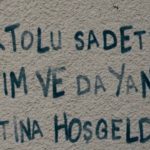 TOLU SADET
İM VE DAYAN
TİNA HOŞGELD